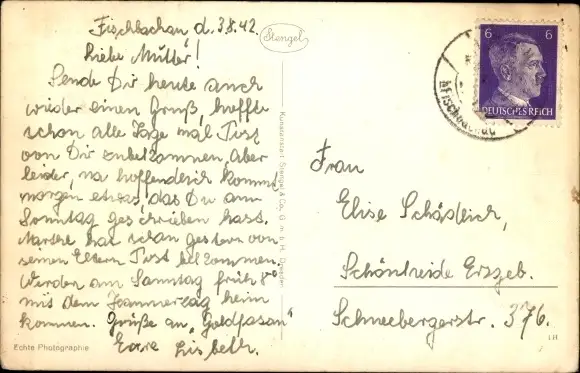 Fischbachau d. 3.8.42.
Liebe Mutter!
Sende Dir heute auch
wieder einen Gruß, hoffte
schon alle Tage mal Post
von Dir zu bekommen, aber
leider, na hoffentlich kommt
morgen etwas, das Du am
Sonntag geschrieben hast.
hat schon gestern von
seinen Eltern Post bekommen.
Werden am Samstag früh 8⁰⁰
mit dem heim
kommen. Grüße an „Goldfasan"
Eure Lisbeth.
Echte Photographie
Stengel
Kunstanstalt Stengel & Co., G. m. b. H. Dresden
6 6
DEUTSCHES REICH
Fischbachau
Frau
Elise Schädlich,
Schönheide Erzgeb.
Schneebergerstr. 376.